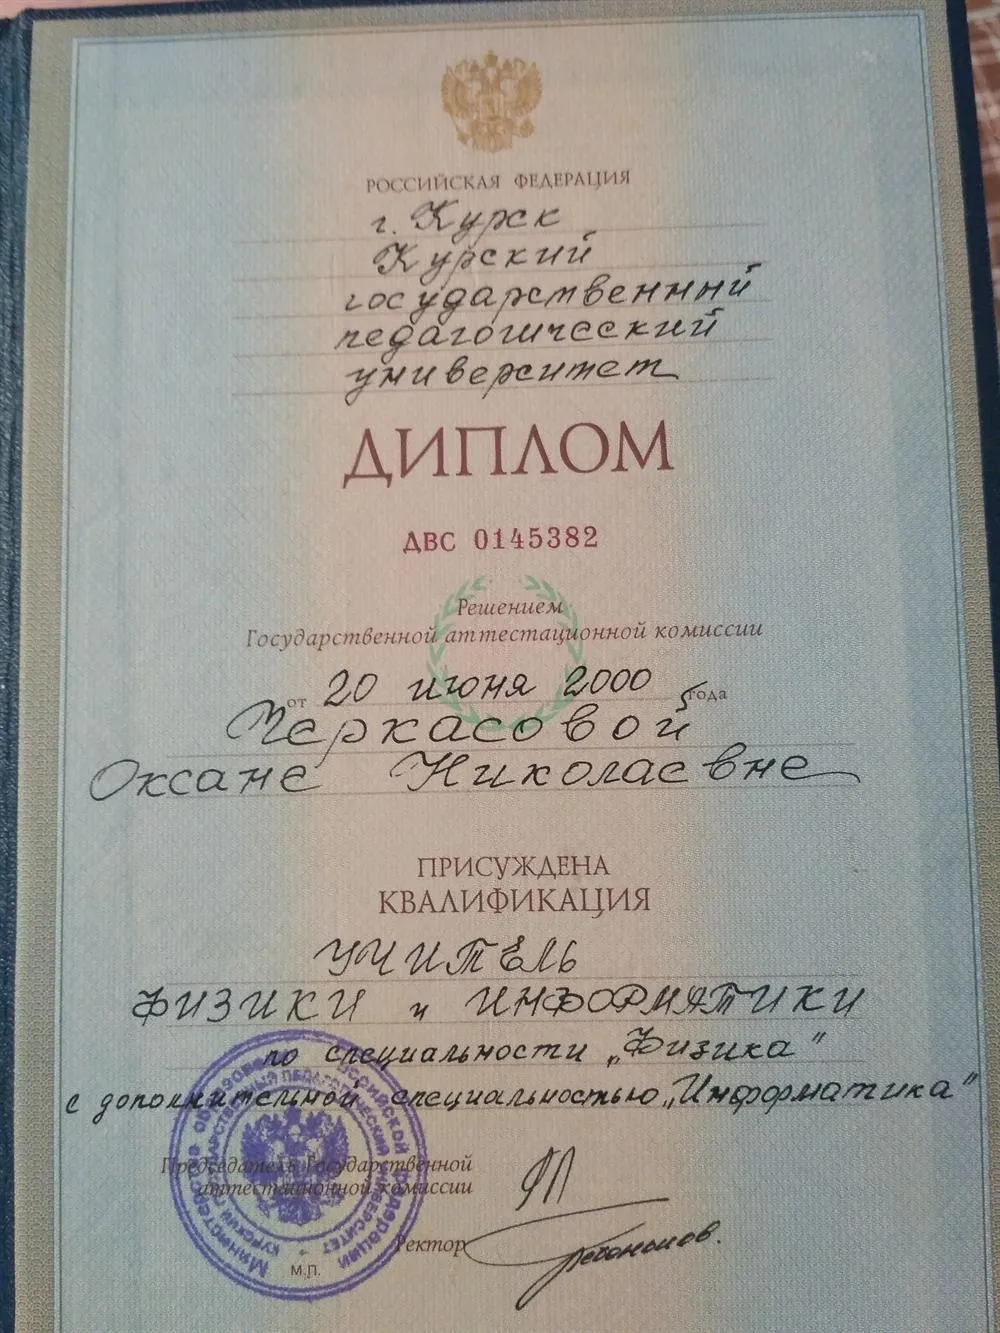 РОССИЙСКАЯ ФЕДЕРАЦИЯ
г. Курск
Курский
государственный
педагогический
университет
ДИПЛОМ
ДВС 0145382
Решением
Государственной аттестационной комиссии
от 20 июня 2000 года
Черкасовой
Оксане Николаевне
ПРИСУЖДЕНА
КВАЛИФИКАЦИЯ
УЧИТЕЛЬ
ФИЗИКИ и ИНФОРМАТИКИ
по специальности „Физика"
с дополнительной специальностью „Информатика"
Председатель Государственной
аттестационной комиссии
Ректор
М.П.
Министерство образования Российской Федерации
КУРСКИЙ ГОСУДАРСТВЕННЫЙ ПЕДАГОГИЧЕСКИЙ УНИВЕРСИТЕТ